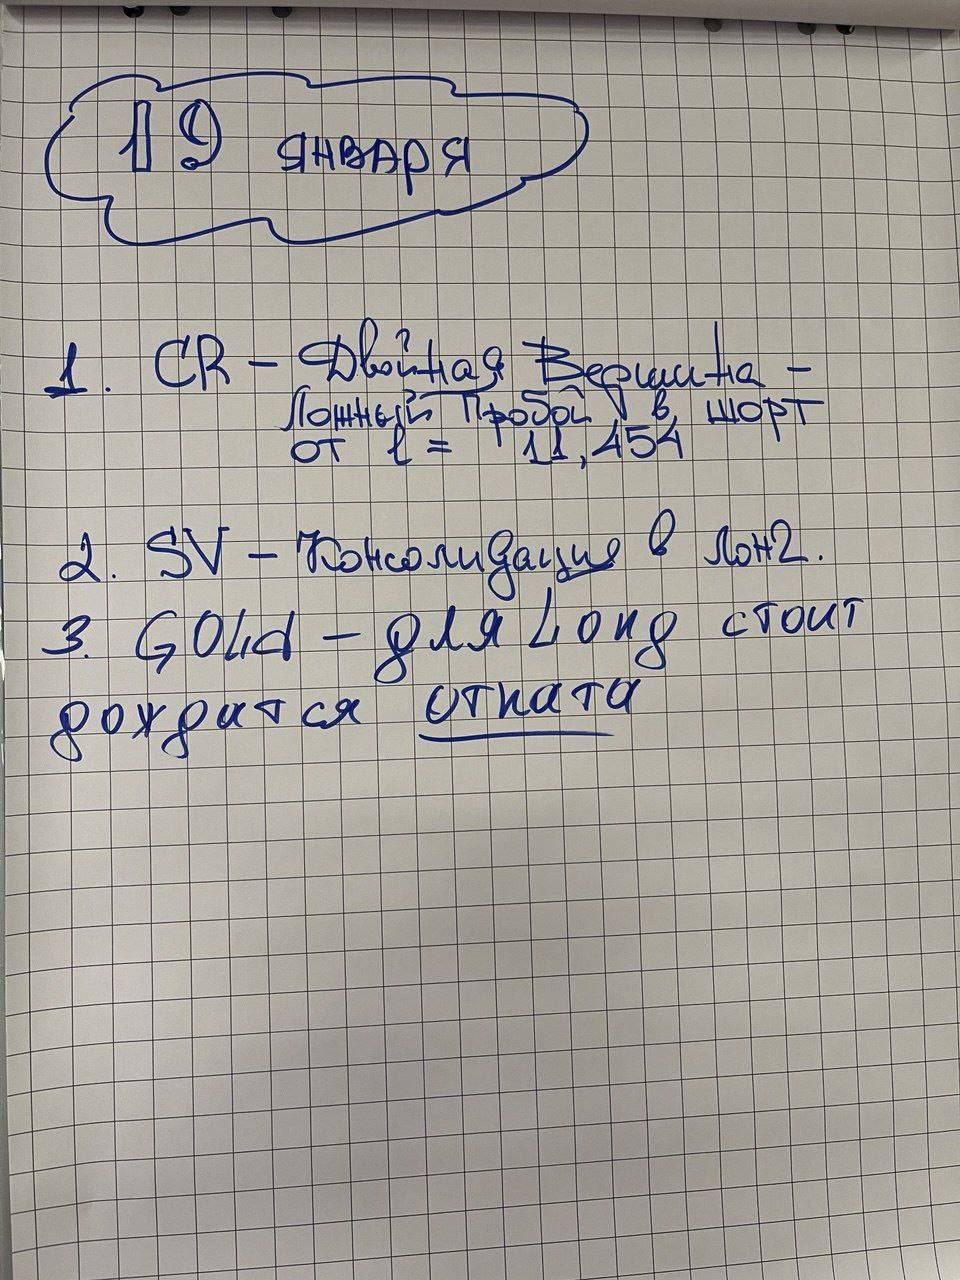 19 января
1. CR - Двойная Вершина -
Ложный Пробой в шорт
от l = 11,454
2. SV - Консолидация в Лонг.
3. GOLd - для Long стоит
дождится отката